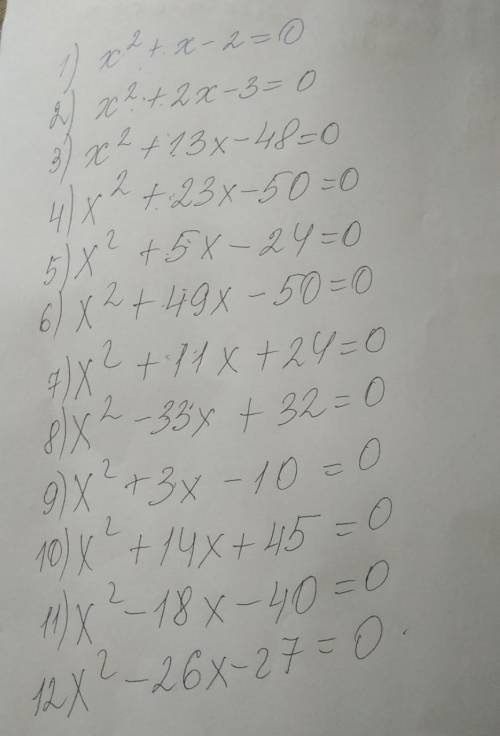 1) x² + x - 2 = 0
2) x² + 2x - 3 = 0
3) x² + 13x - 48 = 0
4) x² + 23x - 50 = 0
5) x² + 5x - 24 = 0
6) x² + 49x - 50 = 0
7) x² + 11x + 24 = 0
8) x² - 33x + 32 = 0
9) x² + 3x - 10 = 0
10) x² + 14x + 45 = 0
11) x² - 18x - 40 = 0
12 x² - 26x - 27 = 0